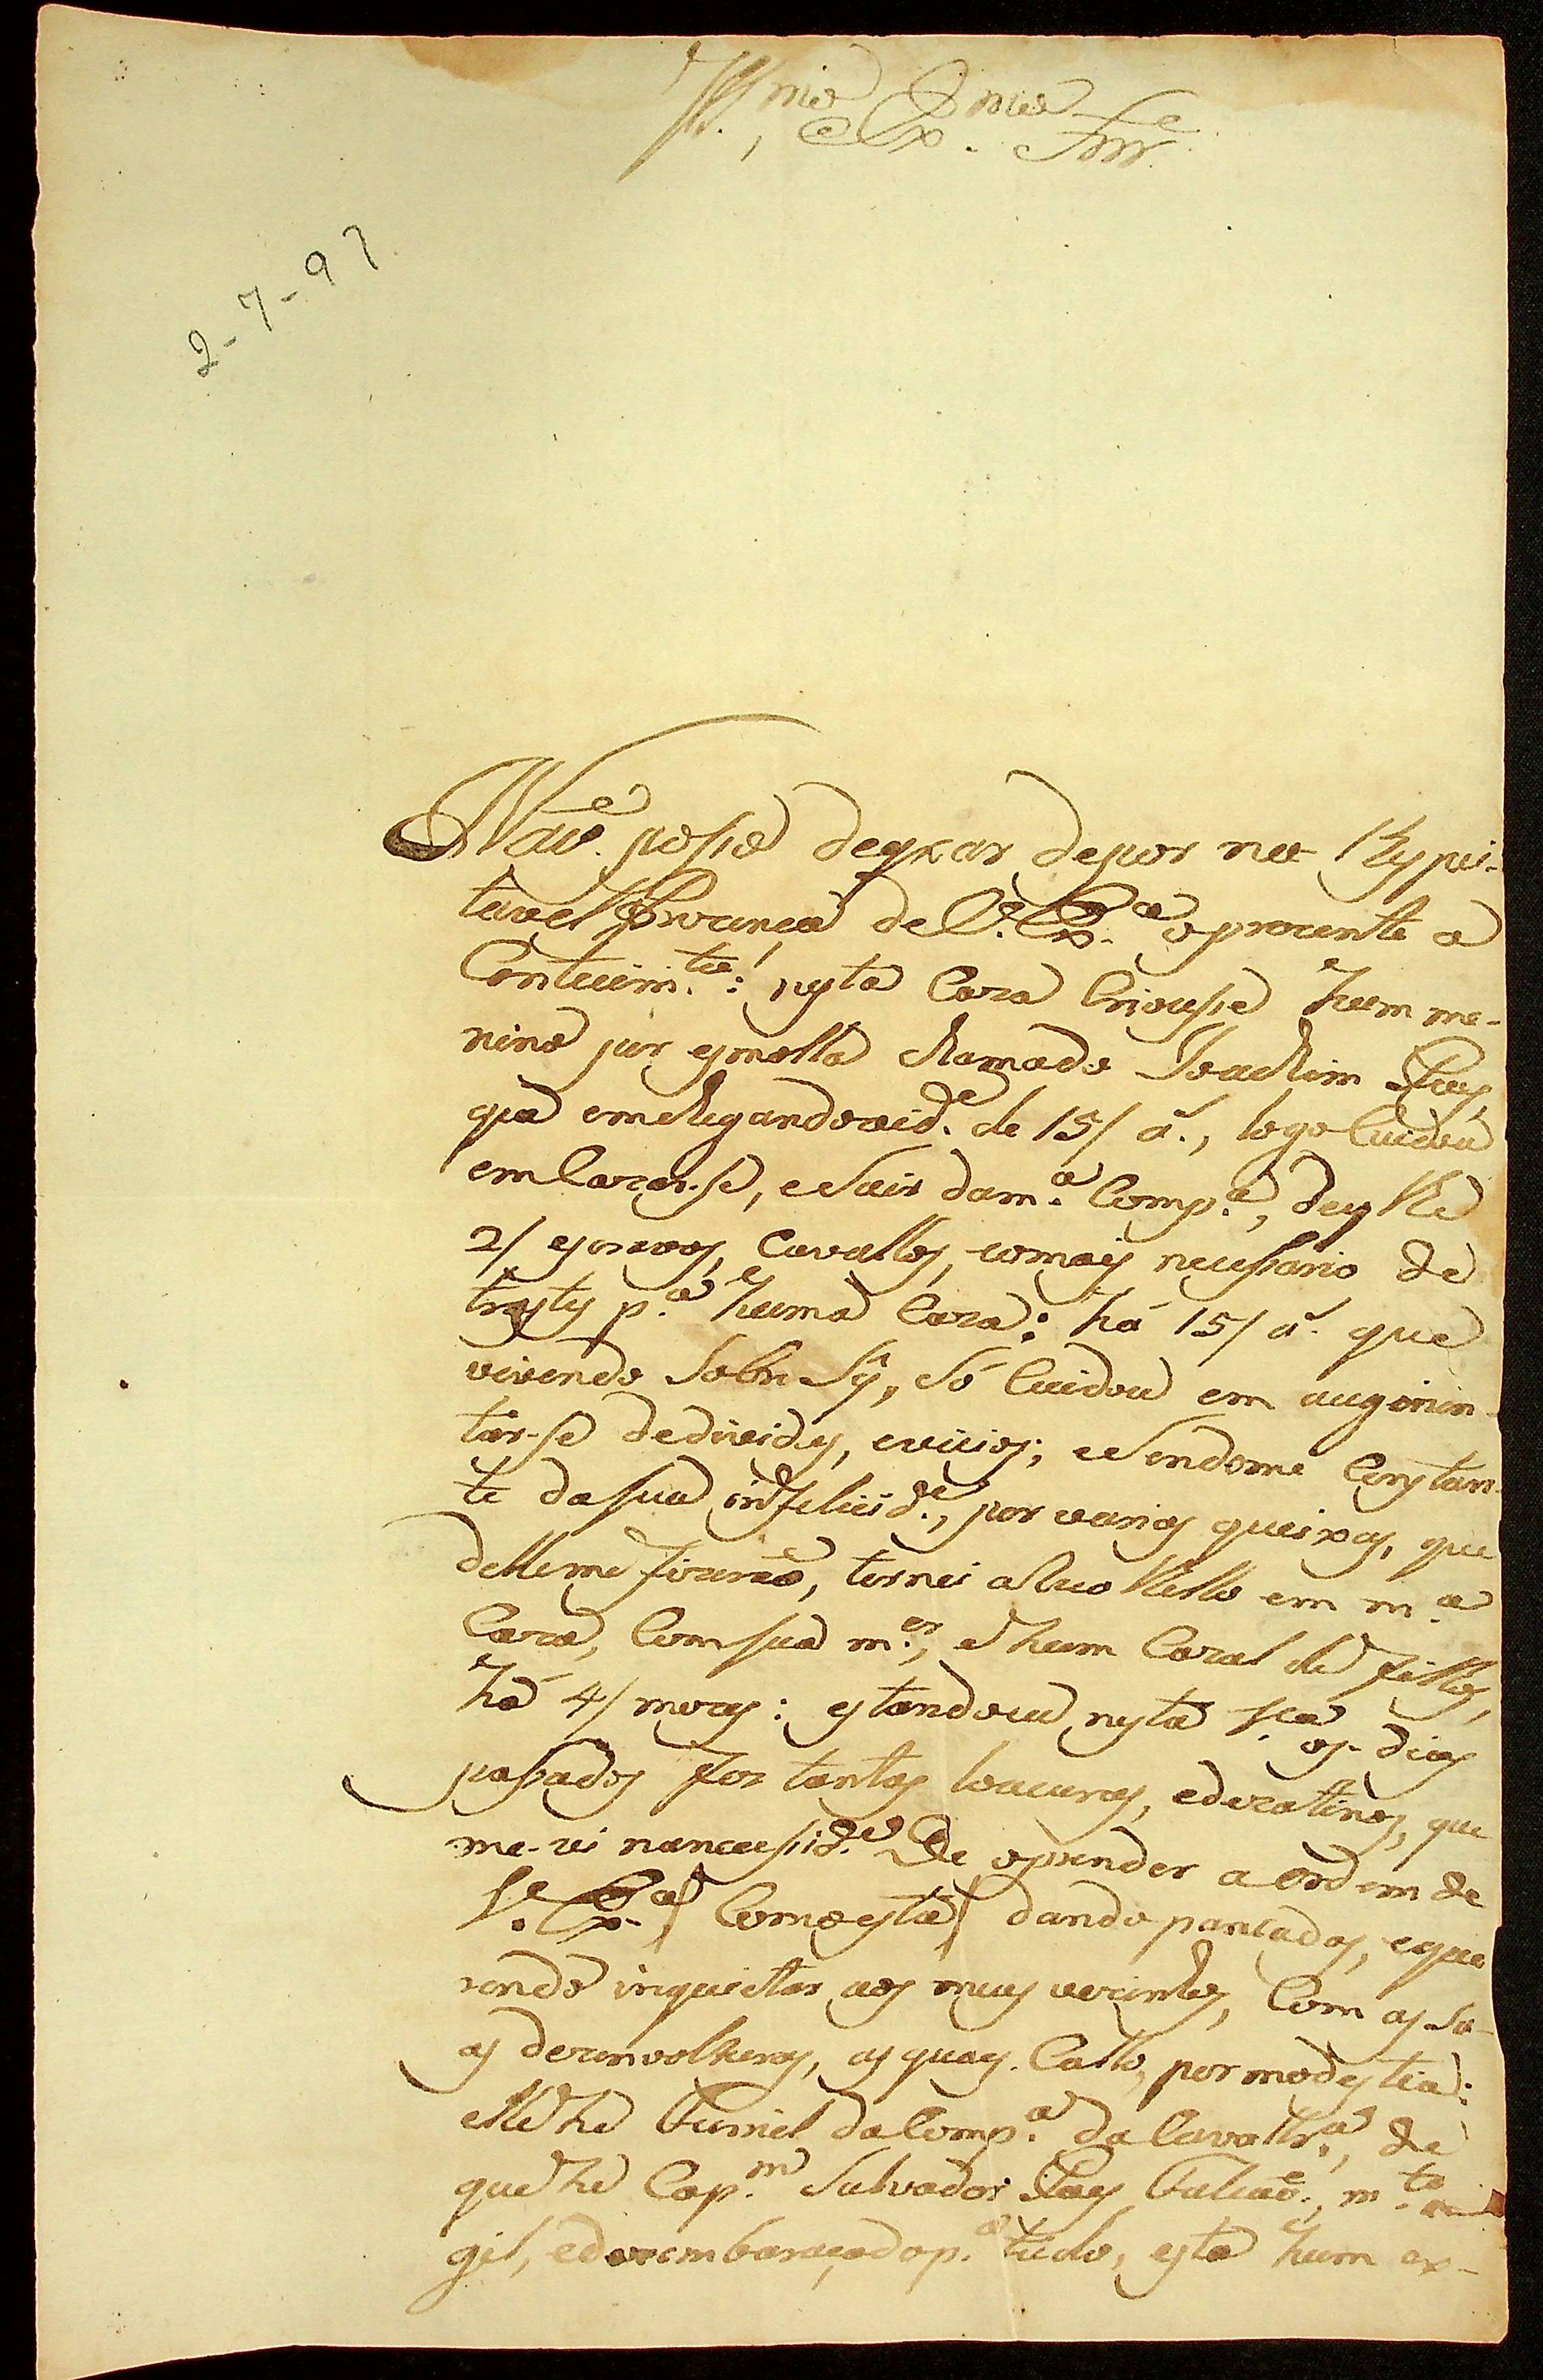 Ill.mo, e Ex.mo Snr.
2-7-97
Naõ. posso deyxar depor na Respei-
tavel Prezença de V. Ex.a o prezente a
Conteúm.to: nesta Caza Criouse hum me-
nino por esmolla chamado Joachim
que em chegando aid.e de 15/ a., logo Cuidou
em Cazar-se, e Sair dam.a Comp.a, dey lhe
2/ escravos, Cavallos, eomais necessario de
trastes p.a huma Caza: há 15/ a. que
vivendo Sobre Sÿ, Só Cuidou em augmen-
tar-se dedividas, evicios; e Sendome Constan-
te dasua infelicid.e, por varias queixas, que
delleme fizeraõ, tornei a Recolhello em m.a
Caza, Com sua m.er, e hum Cazal de filhos,
há 4/ mezes: estandoeu nesta os dias
passados fez tantas loucuras, edezatinos, que
me-vi nanecessid.e De oprender a ordem de
V. Ex.a/ Comoestá/ dando pancadas, eque-
rendo inquietar aos meus vezinhos, Com as Su-
as dezenvolturas, as quaes Callo, por modestia:
elle he Furriel da Comp.a da Cavallr.a, de
que he Cap.m Salvador Falcaõ., m.to
gil, edezembaraçadop.a tudo, está hum ex-